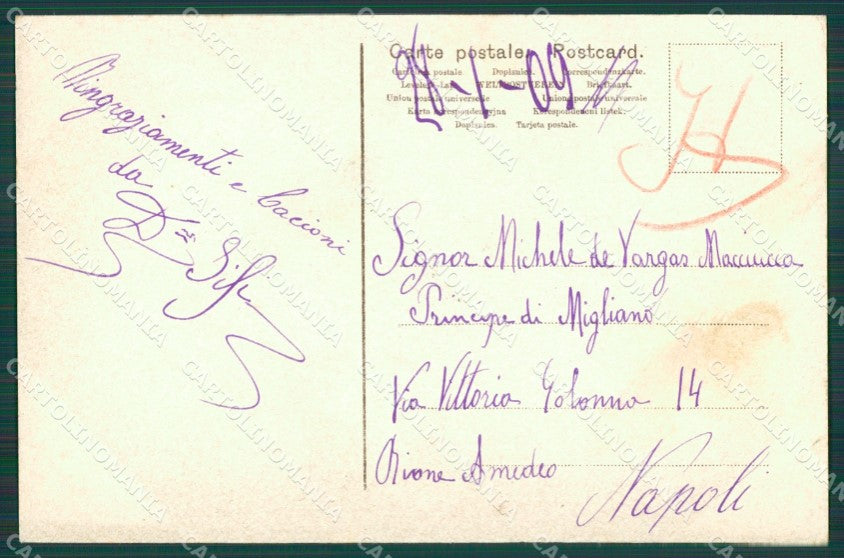 Ringraziamenti e bacioni
da
Carte postale. Postcard.
28-1-09
Cartolina postale Dopisnice. Correspondenzkarte.
WELTPOSTVEREIN Briefkaart.
Union postale universelle Unione postale universale
Karta korespondencyjna Korespondenčni lístek.
Dopisnica. Tarjeta postale.
Signor Michele de Vargas Macciucca
Principe di Migliano
Via Vittoria Colonna 14
Rione Amedeo
Napoli
CARTOLINOMANIA